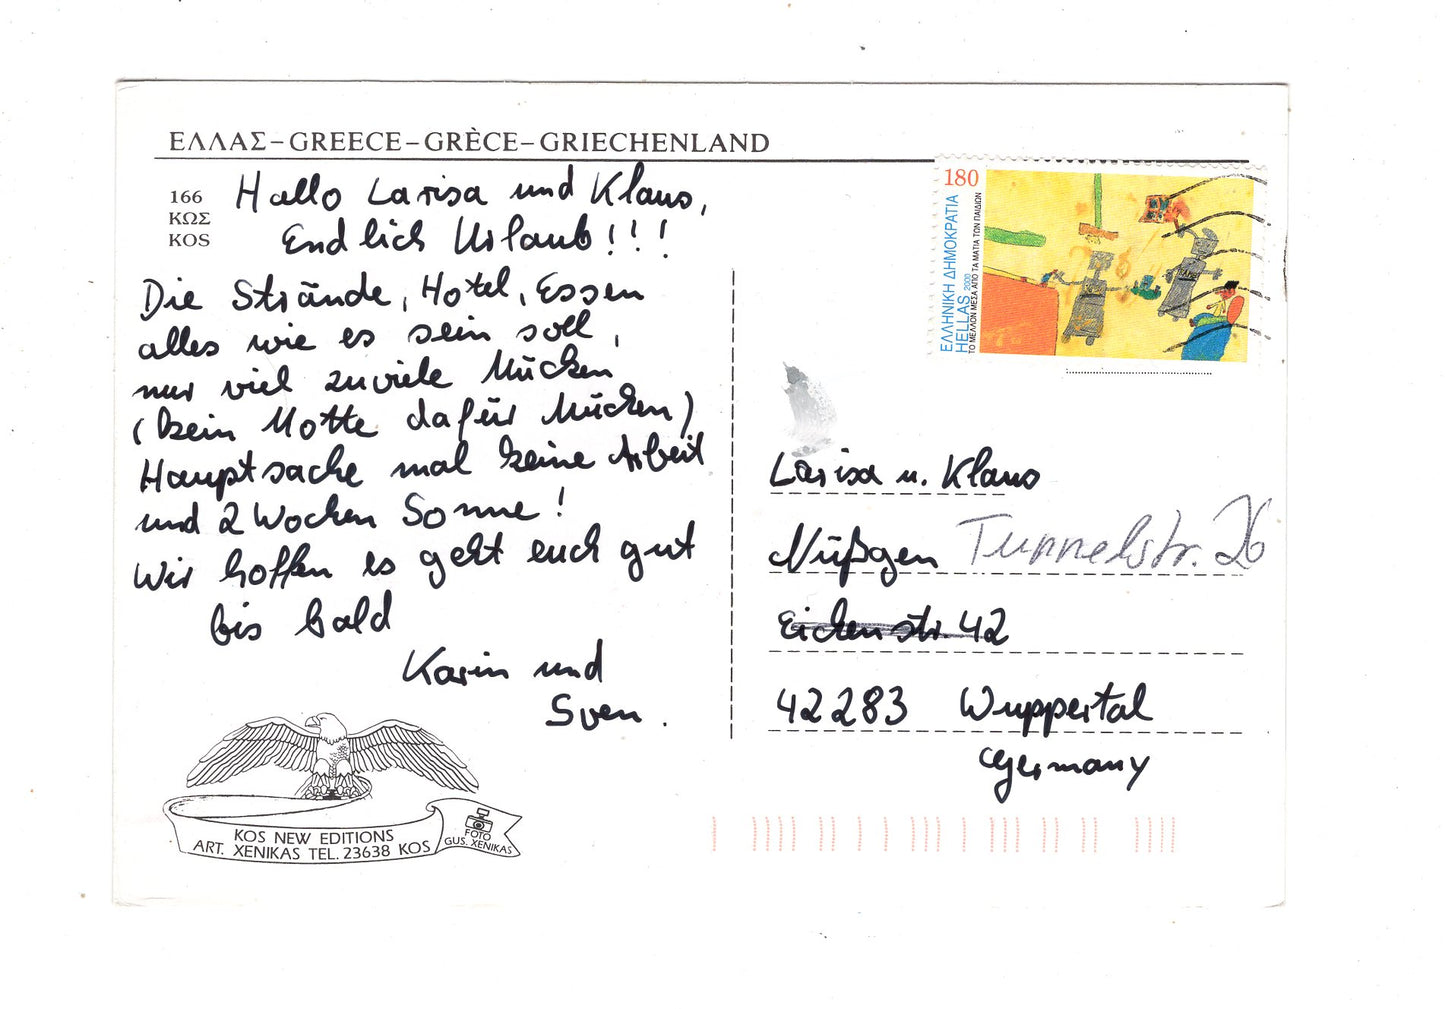 ΕΛΛΑΣ – GREECE – GRÈCE – GRIECHENLAND
166
ΚΩΣ
KOS
Hallo Larisa und Klaus,
Endlich Urlaub!!!
Die Strände, Hotel, Essen
alles wie es sein soll,
nur viel zuviele Mücken
(kein Motte dafür Mücken)
Hauptsache mal keine Arbeit
und 2 Wochen Sonne!
Wir hoffen es geht euch gut
bis bald
Karin und
Sven.
KOS NEW EDITIONS
ART. XENIKAS TEL. 23638 KOS
FOTO
GUS. XENIKAS
180
ΕΛΛΗΝΙΚΗ ΔΗΜΟΚΡΑΤΙΑ
HELLAS 2000
ΤΟ ΜΕΛΛΟΝ ΜΕΣΑ ΑΠΟ ΤΑ ΜΑΤΙΑ ΤΩΝ ΠΑΙΔΙΩΝ
Larisa u. Klaus
Nüßgen Tunnelstr. 26
Eichenstr. 42
42283 Wuppertal
Germany